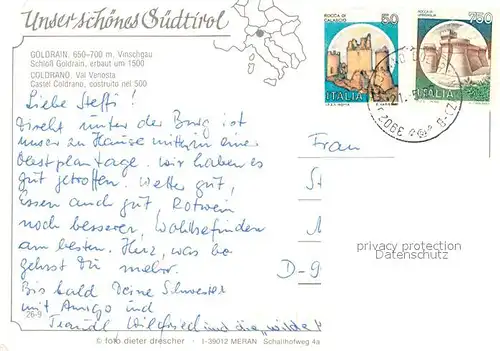 Unser schönes Südtirol
GOLDRAIN, 650-700 m, Vinschgau
Schloß Goldrain, erbaut um 1500
COLDRANO, Val Venosta
Castel Coldrano, costruito nel 500
ROCCA DI CALASCIO
50
ITALIA
ROCCA DI URBISAGLIA
750
ITALIA
3902
Liebe Steffi!
Direkt unter der Burg ist
unser zu Hause mitten in einer
Obstplantage. Wir haben es
gut getroffen. Wetter gut,
Essen auch gut, Rotwein
noch besserer, Wohlbefinden
am besten. Herz, was be-
gehrst Du mehr.
Bis bald Deine Schwester
mit Amigo und
Traudl, Wilfried und die "wilde
Frau
D-9
privacy protection
Datenschutz
26-9
© foto dieter drescher · I-39012 MERAN Schallhofweg 4a